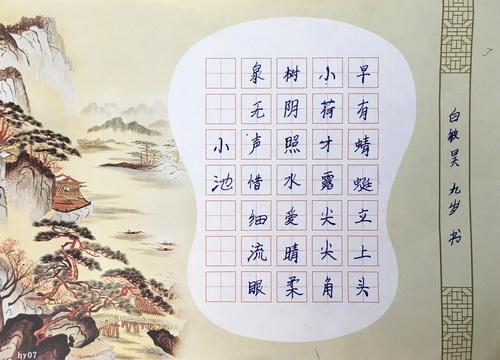 小池
泉无声惜细流眼
树阴照水爱晴柔
小荷才露尖尖角
早有蜻蜓立上头
白敏昊 九岁 书
hy07